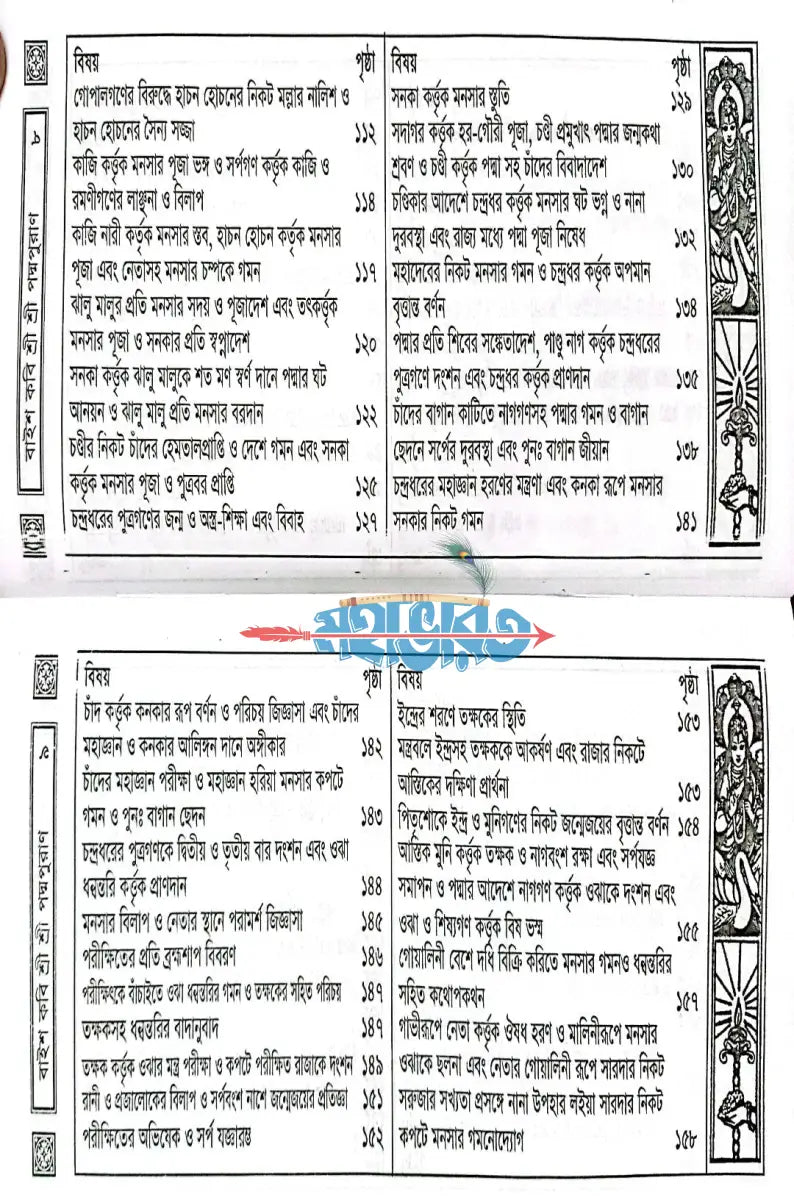 ৮
বাইশ কবি শ্রী শ্রী পদ্মপুরাণ
বিষয় পৃষ্ঠা
গোপালগণের বিরুদ্ধে হাচন হোচনের নিকট মল্লার নালিশ ও
হাচন হোচনের সৈন্য সজ্জা ১১২
কাজি কর্ত্তৃক মনসার পূজা ভঙ্গ ও সর্পগণ কর্ত্তৃক কাজি ও
রমণীগণের লাঞ্ছনা ও বিলাপ ১১৪
কাজি নারী কর্ত্তৃক মনসার স্তব, হাচন হোচন কর্ত্তৃক মনসার
পূজা এবং নেতাসহ মনসার চম্পকে গমন ১১৭
ঝালু মালুর প্রতি মনসার সদয় ও পূজাদেশ এবং তৎকর্ত্তৃক
মনসার পূজা ও সনকার প্রতি স্বপ্নাদেশ ১২০
সনকা কর্ত্তৃক ঝালু মালুকে শত মণ স্বর্ণ দানে পদ্মার ঘট
আনয়ন ও ঝালু মালু প্রতি মনসার বরদান ১২২
চণ্ডীর নিকট চাঁদের হেমতালপ্রাপ্তি ও দেশে গমন এবং সনকা
কর্ত্তৃক মনসার পূজা ও পুত্রবর প্রাপ্তি ১২৫
চন্দ্রধরের পুত্রগণের জন্ম ও অস্ত্র-শিক্ষা এবং বিবাহ ১২৭
বিষয় পৃষ্ঠা
সনকা কর্ত্তৃক মনসার স্তুতি ১২৯
সদাগর কর্ত্তৃক হর-গৌরী পূজা, চণ্ডী প্রমুখাৎ পদ্মার জন্মকথা
শ্রবণ ও চণ্ডী কর্ত্তৃক পদ্মা সহ চাঁদের বিবাদাদেশ ১৩০
চণ্ডিকার আদেশে চন্দ্রধর কর্ত্তৃক মনসার ঘট ভগ্ন ও নানা
দুরবস্থা এবং রাজ্য মধ্যে পদ্মা পূজা নিষেধ ১৩২
মহাদেবের নিকট মনসার গমন ও চন্দ্রধর কর্ত্তৃক অপমান
বৃত্তান্ত বর্ণন ১৩৪
পদ্মার প্রতি শিবের সঙ্কেতাদেশ, পাণ্ডু নাগ কর্ত্তৃক চন্দ্রধরের
পুত্রগণে দংশন এবং চন্দ্রধর কর্ত্তৃক প্রাণদান ১৩৫
চাঁদের বাগান কাটিতে নাগগণসহ পদ্মার গমন ও বাগান
ছেদনে সর্পের দুরবস্থা এবং পুনঃ বাগান জীয়ান ১৩৮
চন্দ্রধরের মহাজ্ঞান হরণের মন্ত্রণা এবং কনকা রূপে মনসার
সনকার নিকট গমন ১৪১
মহাভারত
৯
বাইশ কবি শ্রী শ্রী পদ্মপুরাণ
বিষয় পৃষ্ঠা
চাঁদ কর্ত্তৃক কনকার রূপ বর্ণন ও পরিচয় জিজ্ঞাসা এবং চাঁদের
মহাজ্ঞান ও কনকার আলিঙ্গন দানে অঙ্গীকার ১৪২
চাঁদের মহাজ্ঞান পরীক্ষা ও মহাজ্ঞান হরিয়া মনসার কপটে
গমন ও পুনঃ বাগান ছেদন ১৪৩
চন্দ্রধরের পুত্রগণকে দ্বিতীয় ও তৃতীয় বার দংশন এবং ওঝা
ধন্বন্তরি কর্ত্তৃক প্রাণদান ১৪৪
মনসার বিলাপ ও নেতার স্থানে পরামর্শ জিজ্ঞাসা ১৪৫
পরীক্ষিতের প্রতি ব্রহ্মশাপ বিবরণ ১৪৬
পরীক্ষিৎকে বাঁচাইতে ওঝা ধন্বন্তরির গমন ও তক্ষকের সহিত পরিচয় ১৪৭
তক্ষকসহ ধন্বন্তরির বাদানুবাদ ১৪৭
তক্ষক কর্ত্তৃক ওঝার মন্ত্র পরীক্ষা ও কপটে পরীক্ষিত রাজাকে দংশন ১৪৯
রানী ও প্রজালোকের বিলাপ ও সর্পবংশ নাশে জন্মেজয়ের প্রতিজ্ঞা ১৫১
পরীক্ষিতের অভিষেক ও সর্প যজ্ঞারম্ভ ১৫২
বিষয় পৃষ্ঠা
ইন্দ্রের শরণে তক্ষকের স্থিতি ১৫৩
মন্ত্রবলে ইন্দ্রসহ তক্ষককে আকর্ষণ এবং রাজার নিকটে
আস্তিকের দক্ষিণা প্রার্থনা ১৫৩
পিতৃশোকে ইন্দ্র ও মুনিগণের নিকট জন্মেজয়ের বৃত্তান্ত বর্ণন ১৫৪
আস্তিক মুনি কর্ত্তৃক তক্ষক ও নাগবংশ রক্ষা এবং সর্পযজ্ঞ
সমাপন ও পদ্মার আদেশে নাগগণ কর্ত্তৃক ওঝাকে দংশন এবং
ওঝা ও শিষ্যগণ কর্ত্তৃক বিষ ভস্ম ১৫৫
গোয়ালিনী বেশে দধি বিক্রি করিতে মনসার গমনও ধন্বন্তরির
সহিত কথোপকথন ১৫৭
গাভীরূপে নেতা কর্ত্তৃক ঔষধ হরণ ও মালিনীরূপে মনসার
ওঝাকে ছলনা এবং নেতার গোয়ালিনী রূপে সারদার নিকট
সরুজার সখ্যতা প্রসঙ্গে নানা উপহার লইয়া সারদার নিকট
কপটে মনসার গমনোদ্যোগ ১৫৮